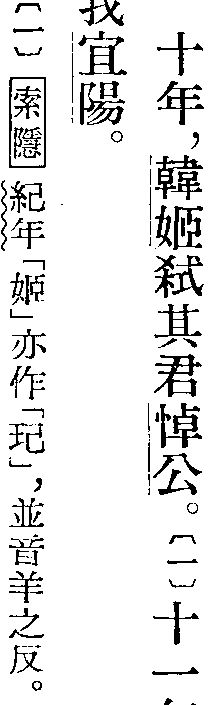 十年，韓姬弒其君悼公。〔一〕十一
我宜陽。
〔一〕索隱 紀年「姬」亦作「玘」，並音羊之反。